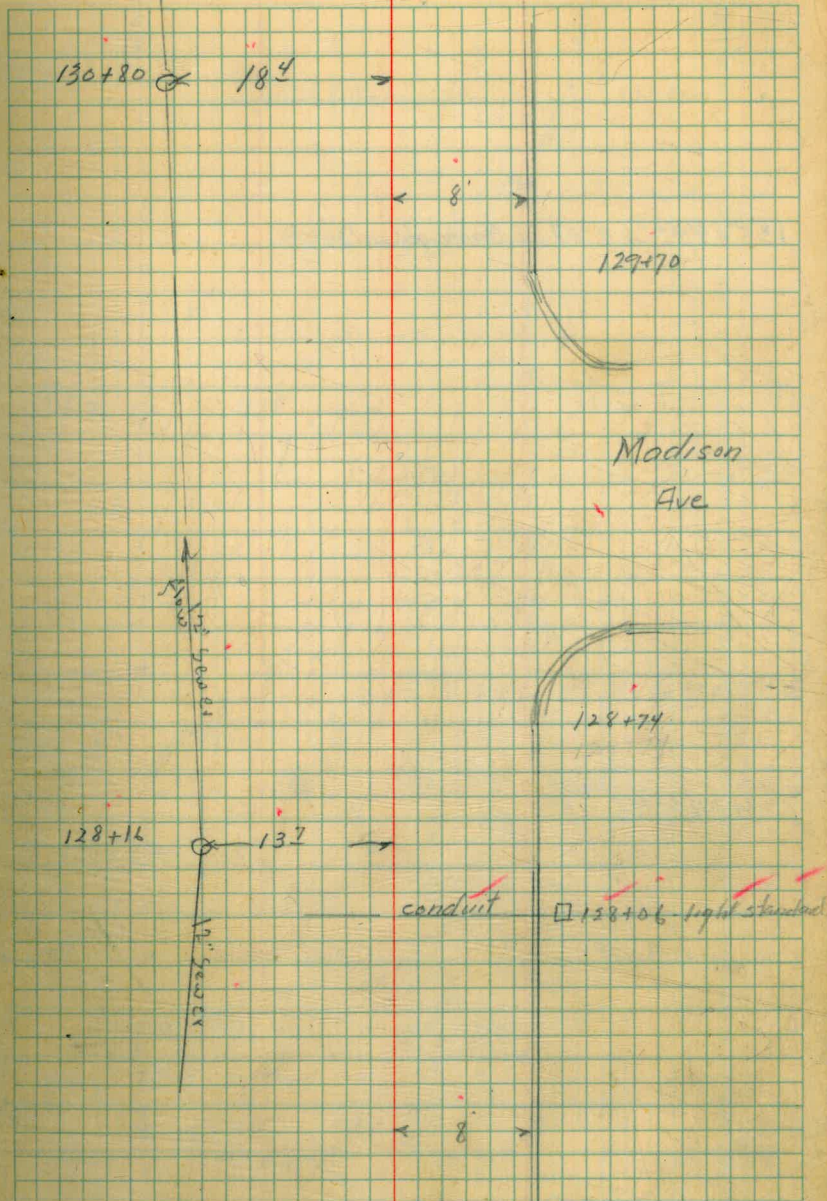 130+80 18 4
8'
129+70
Madison
Ave
12" Sewer
flow
128+74
128+16 13 7
conduit 128+06 - light standard
12" Sewer
8'